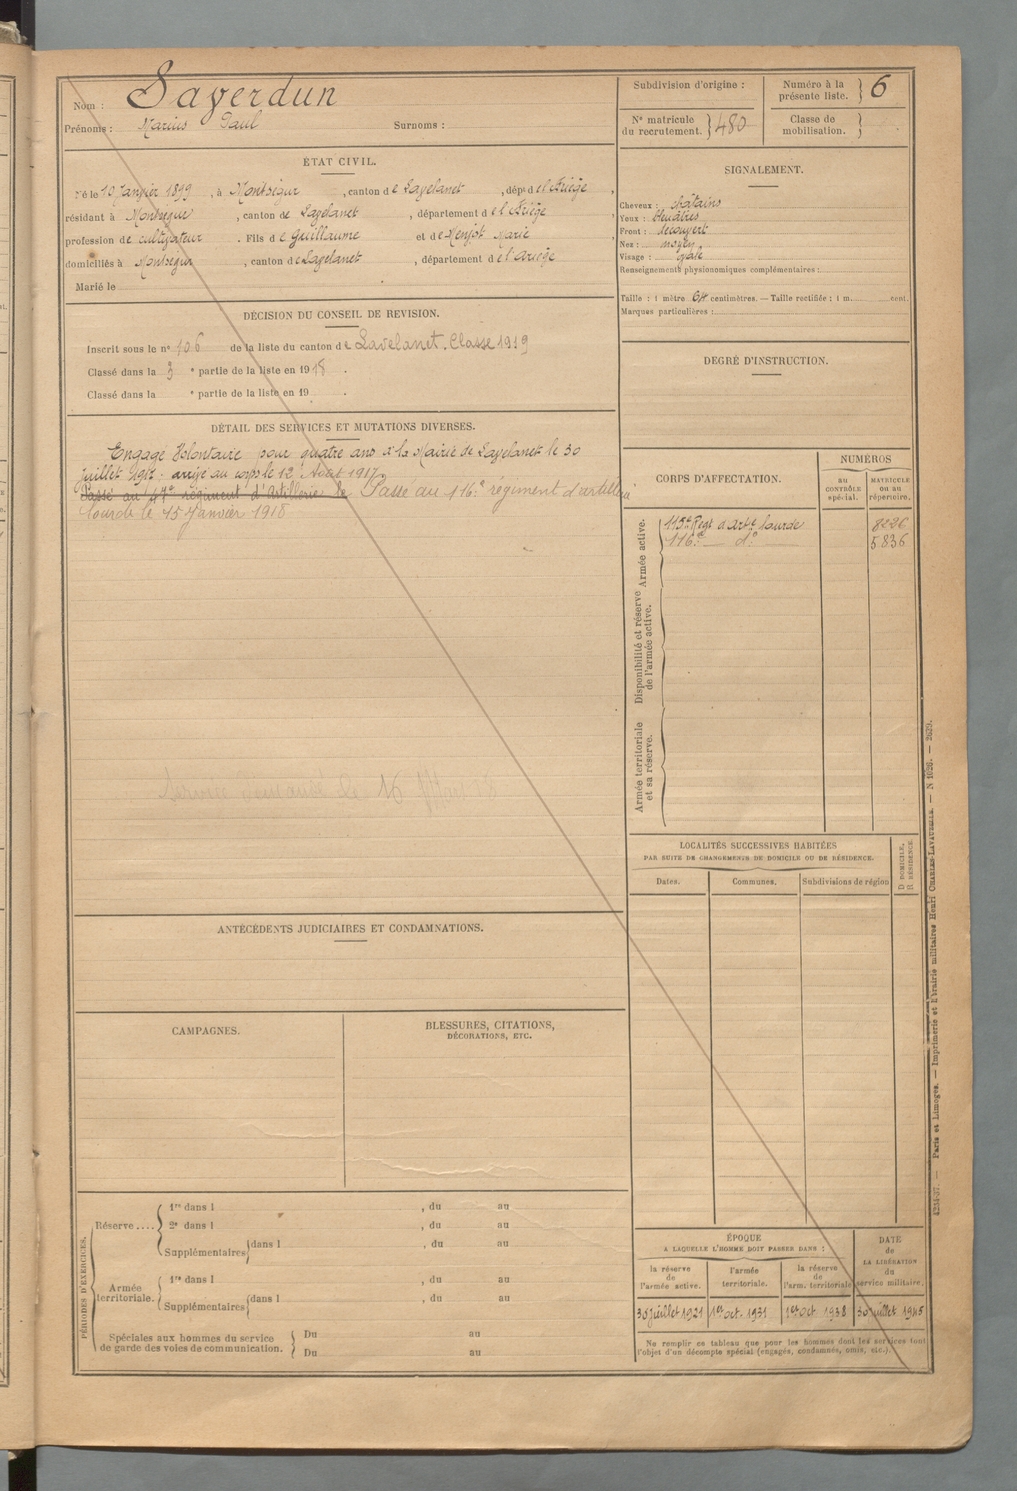 Nom : Saverdun
Prénoms : Marius Paul Surnoms :
Subdivision d'origine :
Numéro à la présente liste. } 6
N° matricule du recrutement. } 480
Classe de mobilisation. }
ÉTAT CIVIL.
Né le 10 Janvier 1899, à Montségur, canton de Lavelanet, dépt de l'Ariège,
résidant à Montségur, canton de Lavelanet, département de l'Ariège,
profession de cultivateur. Fils de Guillaume et de Menjot Marie
domiciliés à Montségur, canton de Lavelanet, département de l'Ariège
Marié le
SIGNALEMENT.
Cheveux : châtains
Yeux : bleuâtres
Front : découvert
Nez : moyen
Visage : ovale
Renseignements physionomiques complémentaires :
Taille : 1 mètre 64 centimètres. — Taille rectifiée : 1 m. cent.
Marques particulières :
DÉCISION DU CONSEIL DE REVISION.
Inscrit sous le n° 106 de la liste du canton de Lavelanet. Classe 1919
Classé dans la 3 e partie de la liste en 1918.
Classé dans la e partie de la liste en 19 .
DEGRÉ D'INSTRUCTION.
DÉTAIL DES SERVICES ET MUTATIONS DIVERSES.
Engagé Volontaire pour quatre ans à la Mairie de Lavelanet le 30
Juillet 1917. arrivé au corps le 12 Août 1917.
Passé au régiment d'Artillerie le Passé au 116e régiment d'artillerie
lourde le 15 Janvier 1918
le 16
CORPS D'AFFECTATION.
NUMÉROS
au CONTRÔLE spécial.
MATRICULE ou au répertoire.
Armée active.
115e Regt d'Artie lourde 8226
116e — do — 5836
Disponibilité et réserve de l'armée active.
Armée territoriale et sa réserve.
LOCALITÉS SUCCESSIVES HABITÉES
PAR SUITE DE CHANGEMENTS DE DOMICILE OU DE RÉSIDENCE.
Dates. Communes. Subdivisions de région
D DOMICILE.
R RÉSIDENCE.
ANTÉCÉDENTS JUDICIAIRES ET CONDAMNATIONS.
CAMPAGNES.
BLESSURES, CITATIONS,
DÉCORATIONS, ETC.
PÉRIODES D'EXERCICES.
Réserve ....
1re dans l , du au
2e dans l , du au
Supplémentaires dans l , du au
Armée territoriale.
1re dans l , du au
Supplémentaires dans l , du au
Spéciales aux hommes du service
de garde des voies de communication.
Du au
Du au
ÉPOQUE
A LAQUELLE L'HOMME DOIT PASSER DANS :
la réserve de l'armée active.
l'armée territoriale.
la réserve de l'arm. territoriale
DATE de LA LIBÉRATION du service militaire.
30 juillet 1921 1er oct. 1931 1er oct. 1938 30 juillet 1945
Ne remplir ce tableau que pour les hommes dont les services font
l'objet d'un décompte spécial (engagés, condamnés, omis, etc.).
4234-17. — Paris et Limoges. — Imprimerie et librairie militaires Henri CHARLES-LAVAUZELLE. — N 1626. — 2629.